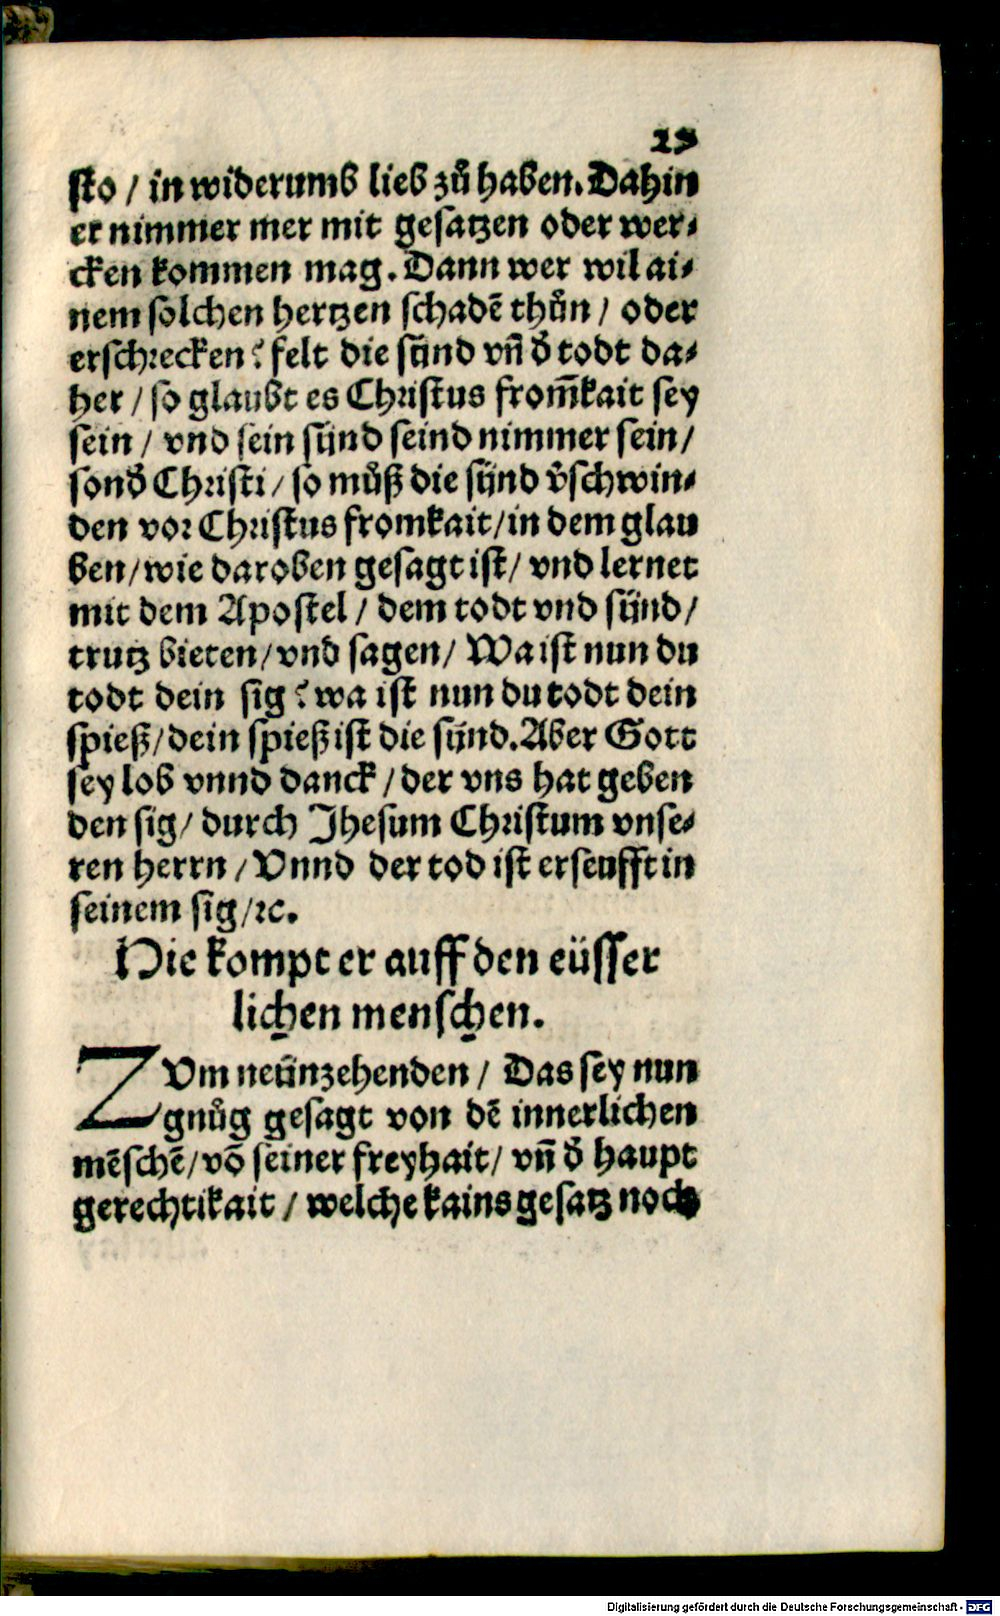 23
ſto / in widerumb lieb zů haben. Dahin
er nimmer mer mit geſatzen oder wer⸗
cken kommen mag. Dann wer wil ai⸗
nem ſolchen hertzen ſchadē thůn / oder
erſchrecken? felt die ſünd vñ d̓ todt da⸗
her / ſo glaubt es Chriſtus from̄kait ſey
ſein / vnd ſein ſünd ſeind nimmer ſein /
ſond̓ Chriſti / ſo můß die ſünd v̓ſchwin⸗
den vor Chriſtus fromkait / in dem glau
ben / wie daroben geſagt iſt / vnd lernet
mit dem Apoſtel / dem todt vnd ſünd /
trutz bieten / vnd ſagen / Wa iſt nun du
todt dein ſig? wa iſt nun du todt dein
ſpieß / dein ſpieß iſt die ſünd. Aber Gott
ſey lob vnnd danck / der vns hat geben
den ſig / durch Jheſum Chriſtum vnſe⸗
ren herrn / Vnnd der tod iſt erſeufft in
ſeinem ſig / ꝛc.
Hie kompt er auff den eüſſer
lichen menſchen.
ZVm neünzehenden / Das ſey nun
gnůg geſagt von dē innerlichen
mēſchē / vō ſeiner freyhait / vñ d̓ haupt
gerechtikait / welche kains geſatz noch
Digitalisierung gefördert durch die Deutsche Forschungsgemeinschaft - DFG